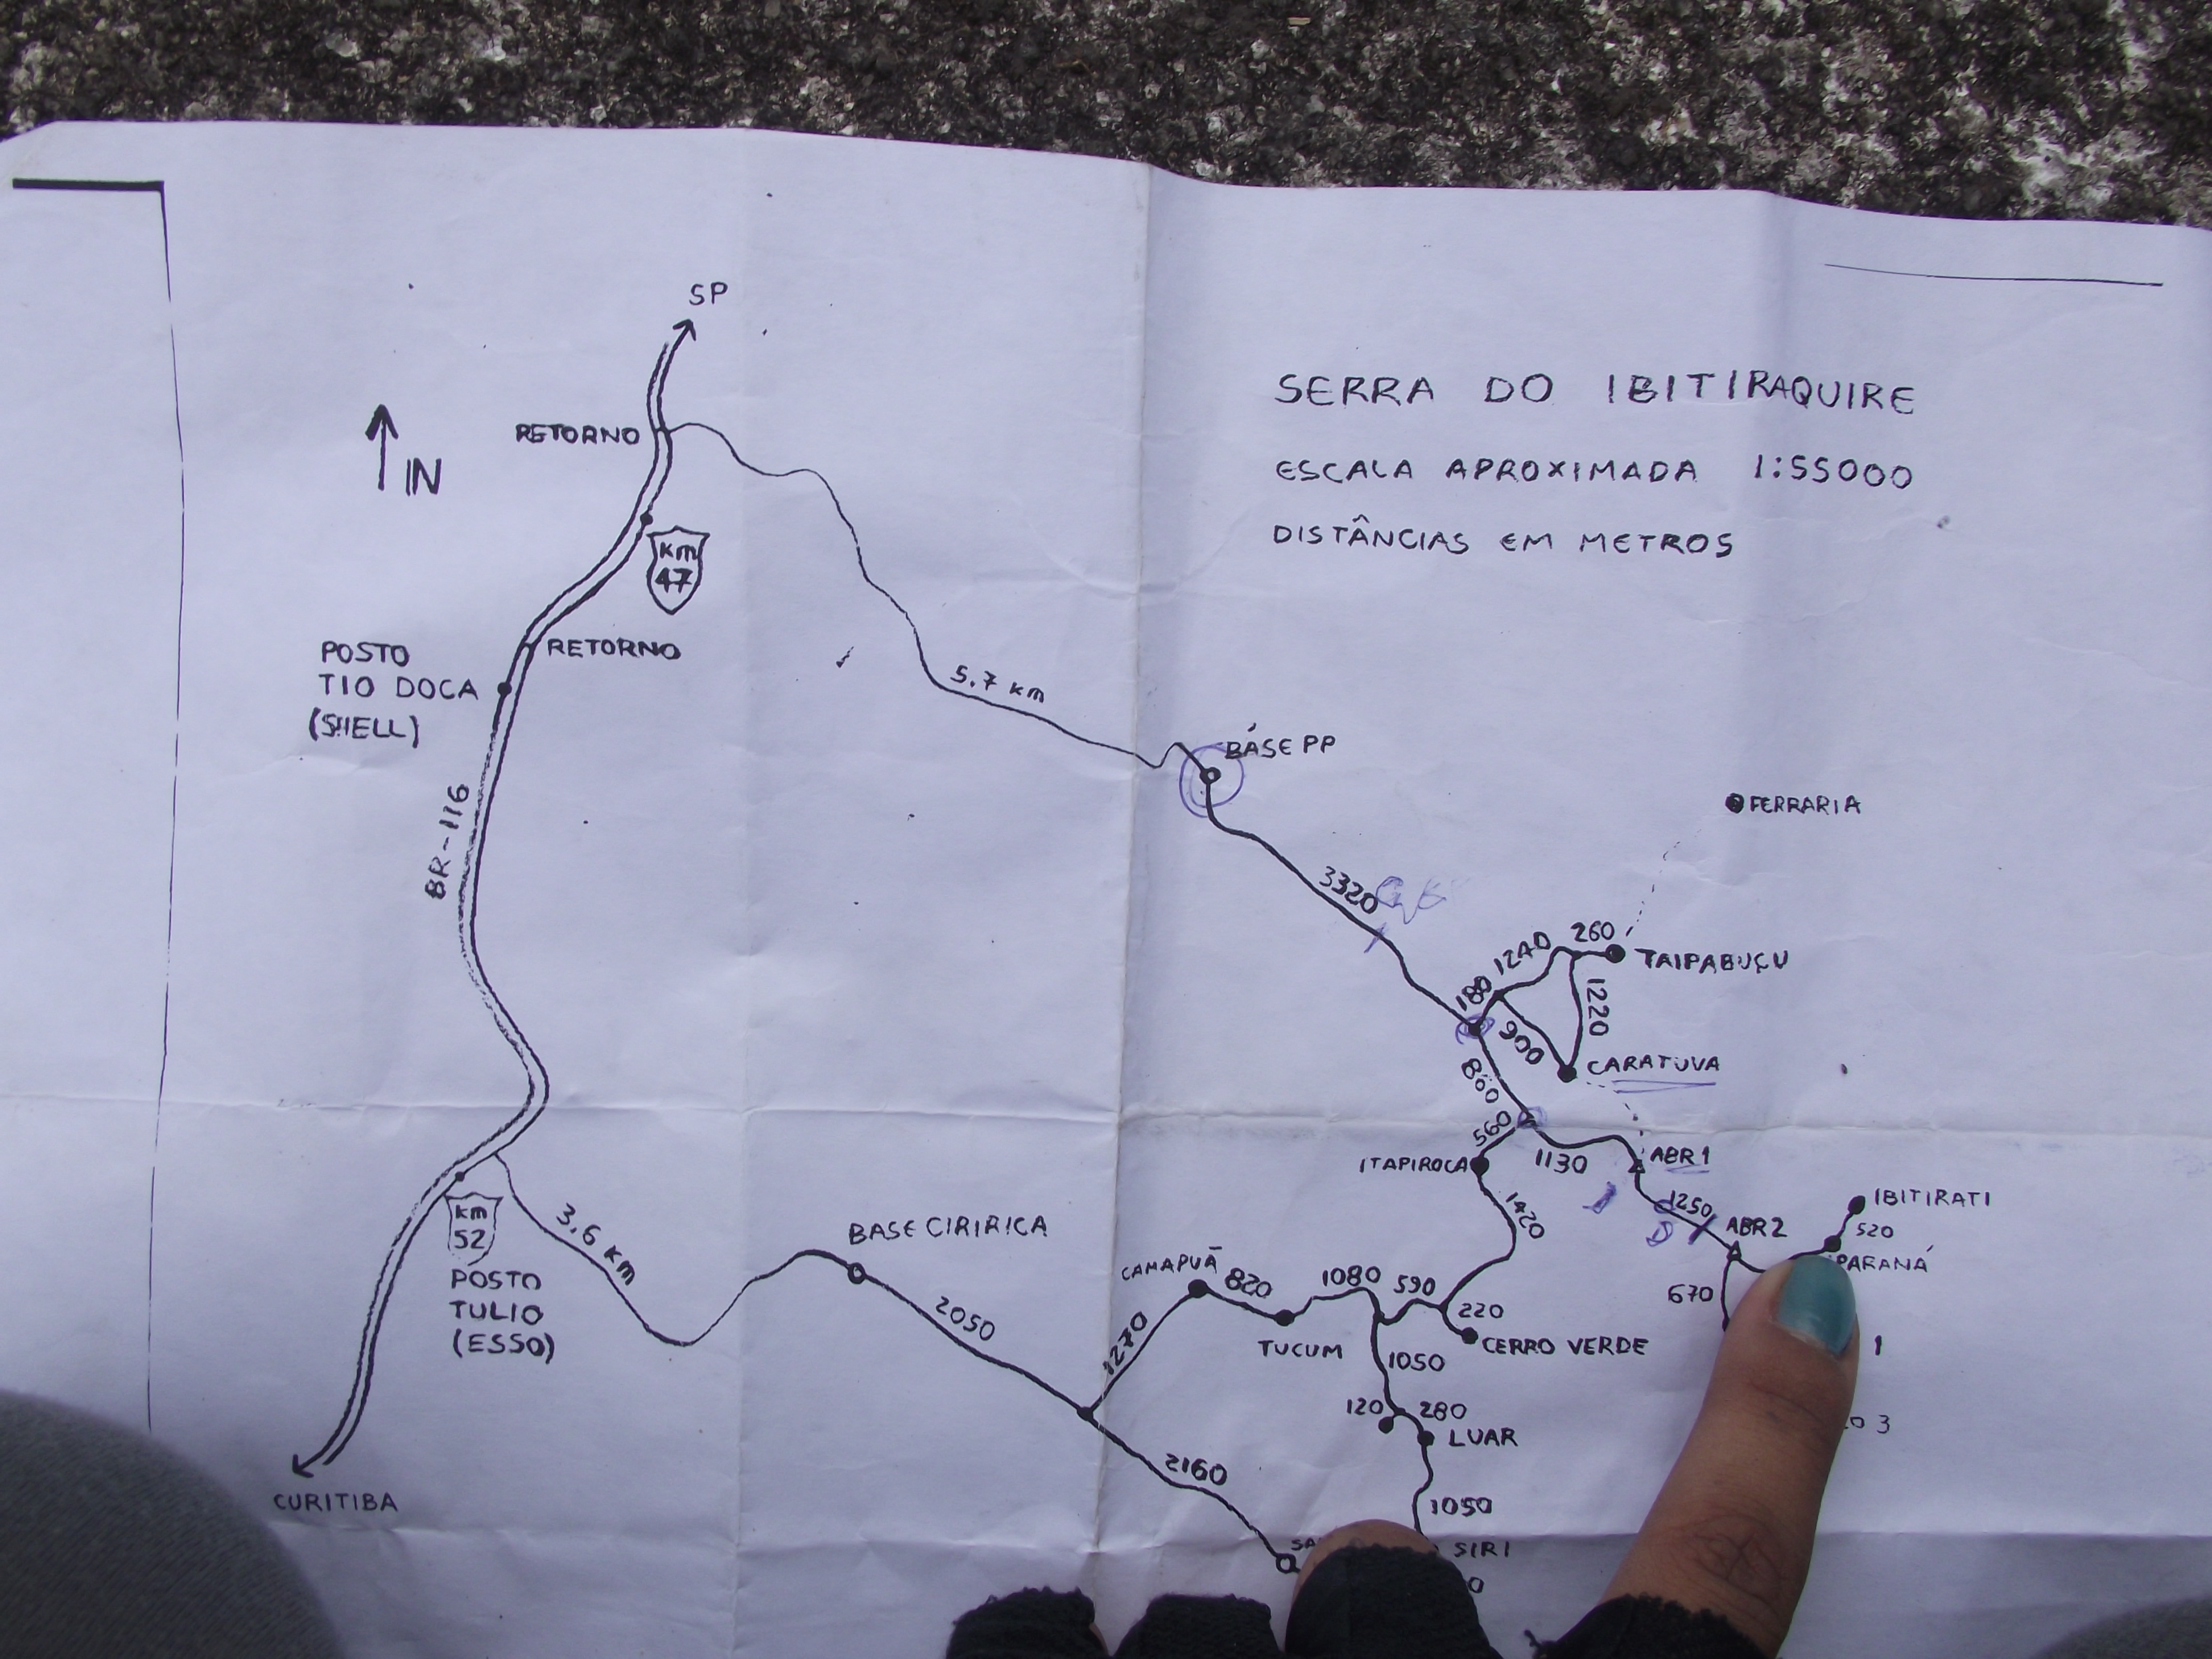 SP
SERRA DO IBITIRAQUIRE
RETORNO
N
ESCALA APROXIMADA 1:55000
DISTÂNCIAS EM METROS
km
47
RETORNO
POSTO
TIO DOCA
(SHELL)
5.7 km
BASE PP
BR-116
FERRARIA
3320
260
1240
TAIPABUÇU
180
1220
900
CARATUVA
860
560
ITAPIROCA
1130
ABR1
1250
IBITIRATI
ABR2
520
PARANÁ
670
1420
km
52
3,6 km
BASE CIRIRICA
POSTO
TULIO
(ESSO)
CAMAPUÃ
820
1080
590
220
2050
TUCUM
CERRO VERDE
1270
1050
1
120
280
LUAR
3
2160
CURITIBA
1050
SIRI